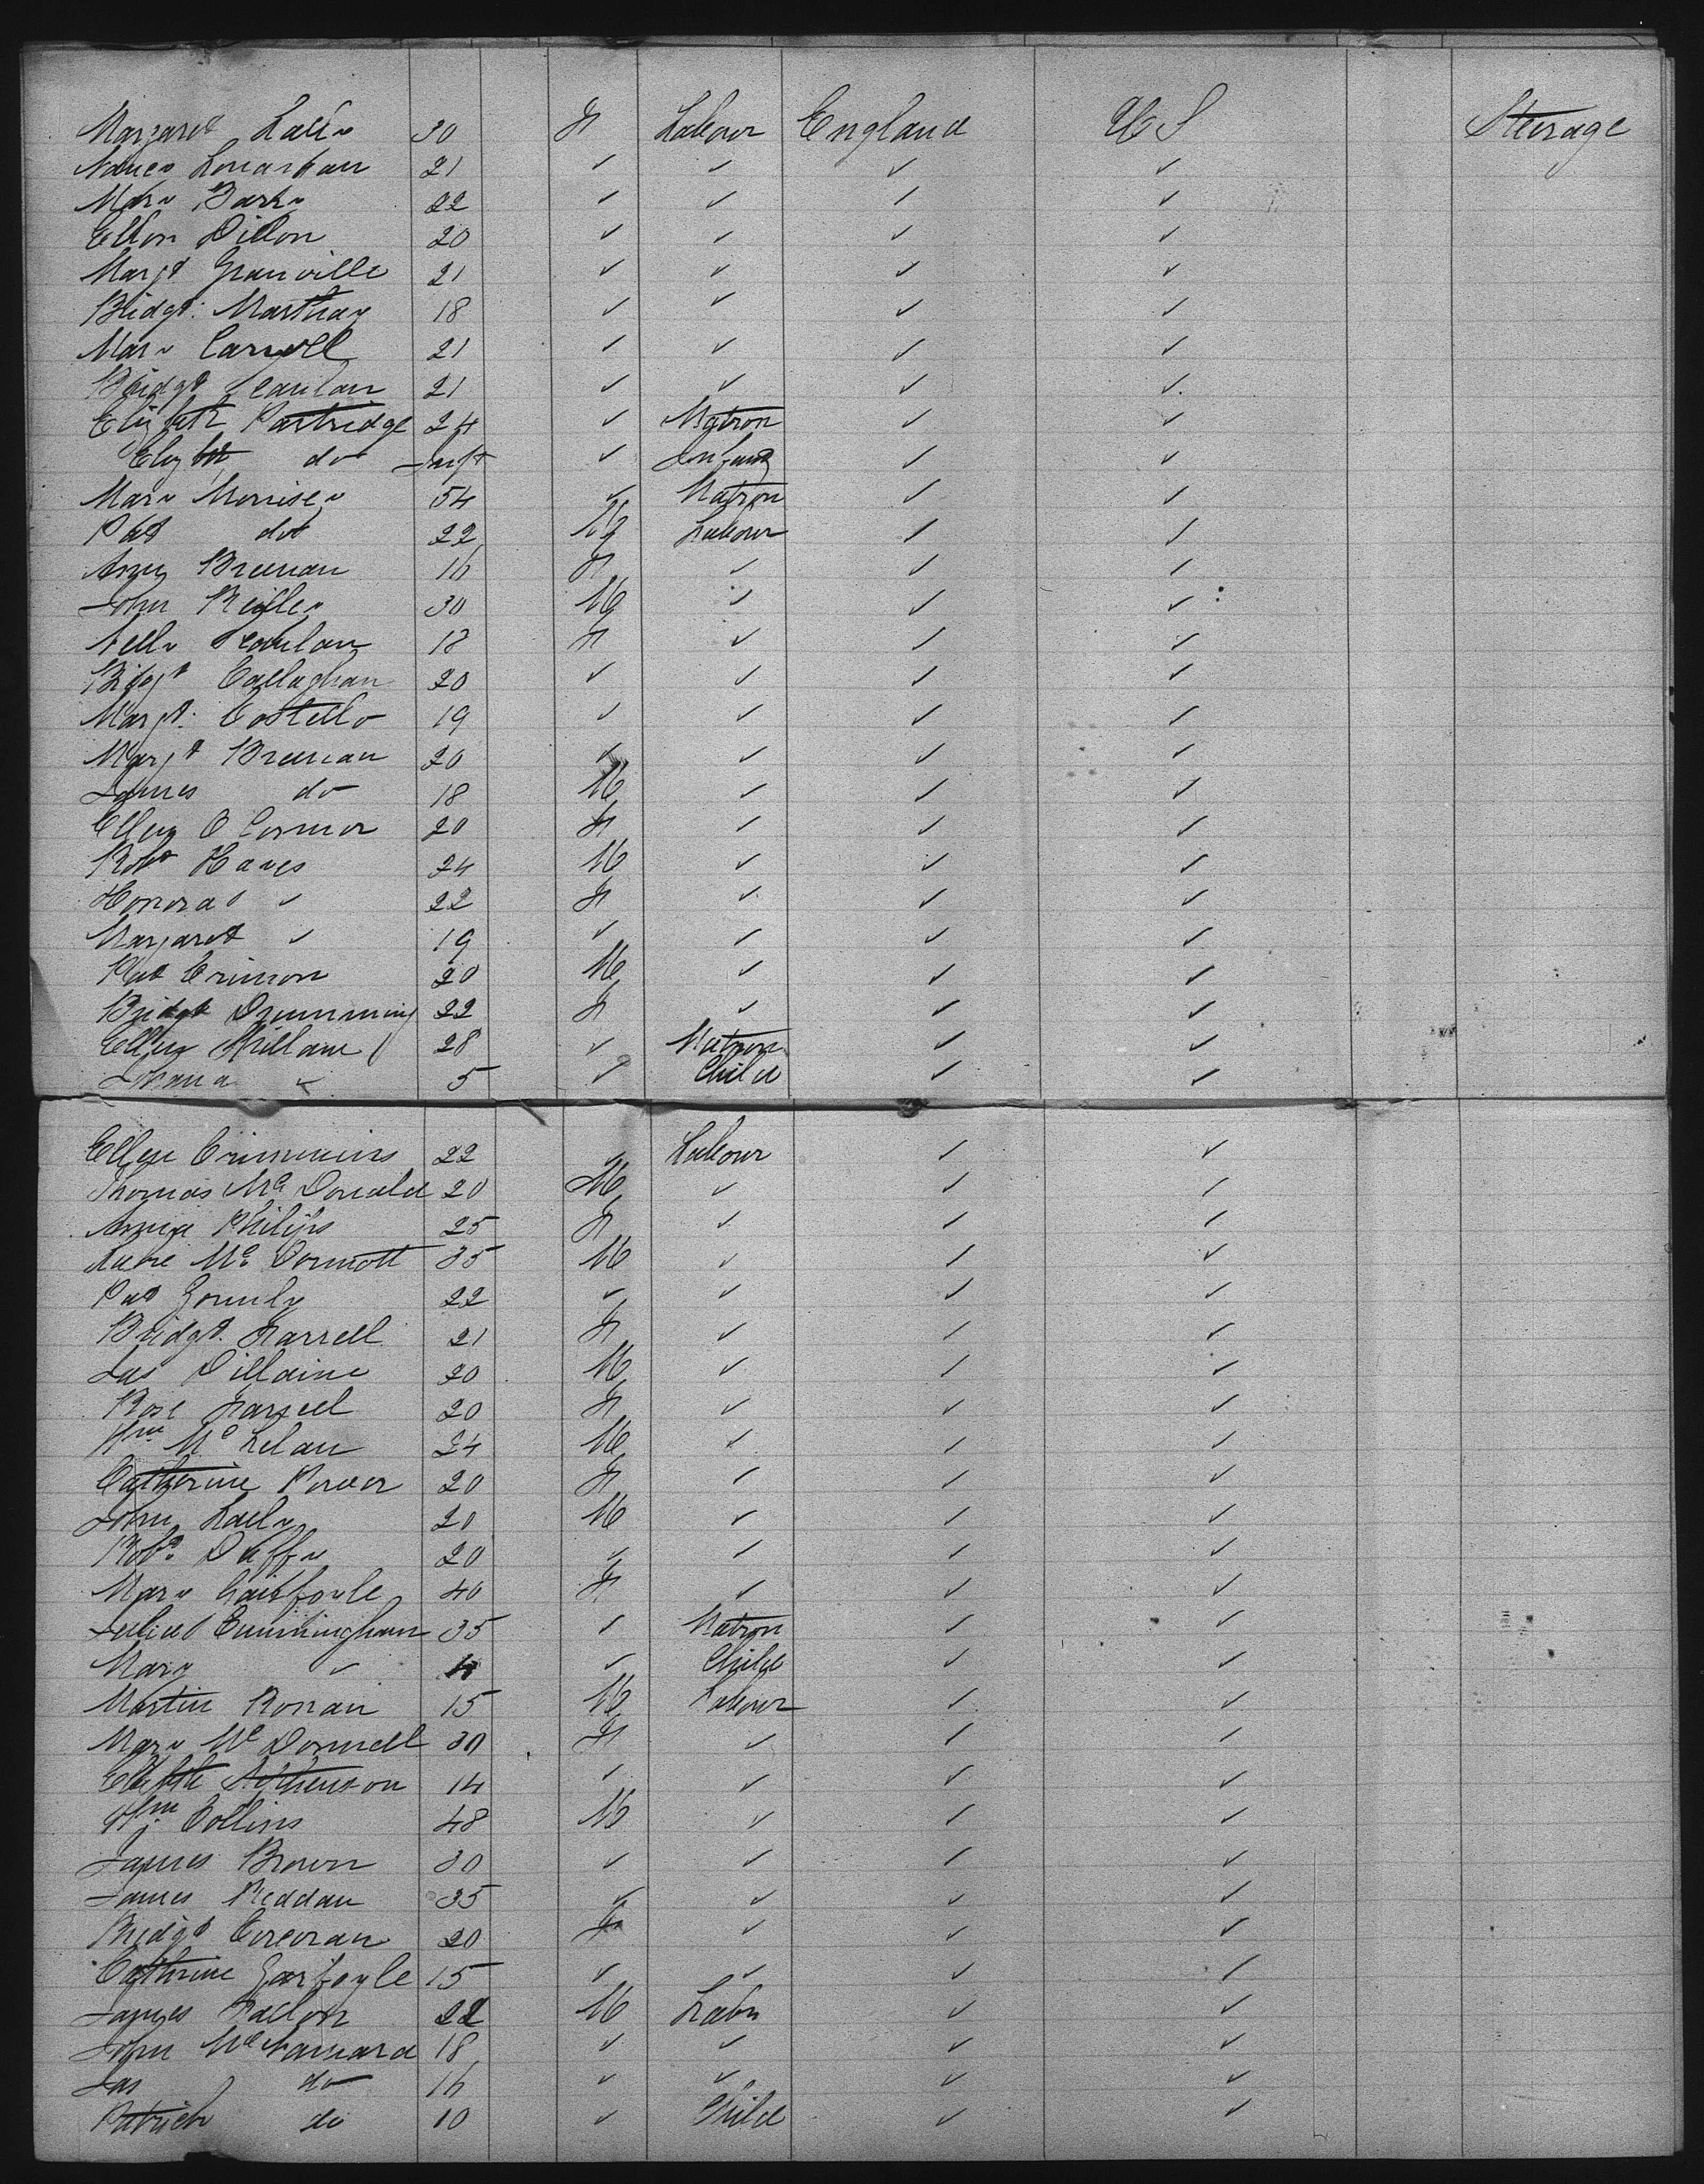 Margaret Lally 30 F Labour England U S Steerage
Nancy Lonarkan 21 ✓ ✓ ✓ ✓
Mary Barry 22 ✓ ✓ ✓ ✓
Ellen Dillon 20 ✓ ✓ ✓ ✓
Margt Granville 21 ✓ ✓ ✓ ✓
Bridgt. 18 ✓ ✓ ✓ ✓
Mary Carroll 21 ✓ ✓ ✓ ✓
Bridgt Scanlan 21 ✓ ✓ ✓ ✓
Elizbeth Partridge 24 ✓ Matron ✓ ✓
Elizbth do Inft ✓ Infant ✓ ✓
Mary Morrisey 54 ✓ Matron ✓ ✓
Pat do 22 M Labour ✓ ✓
Anny Brenan 16 F ✓ ✓ ✓
John Reilley 30 M ✓ ✓ ✓
Nelly Scanlan 18 F ✓ ✓ ✓
Bidgt Callaghan 20 ✓ ✓ ✓ ✓
Margt. Costello 19 ✓ ✓ ✓ ✓
Margt Brenan 20 ✓ ✓ ✓ ✓
James do 18 M ✓ ✓ ✓
Ellen O Connor 20 F ✓ ✓ ✓
Robt Hayes 24 M ✓ ✓ ✓
Honora ✓ 22 F ✓ ✓ ✓
Margaret ✓ 19 ✓ ✓ ✓ ✓
Pat Crimon 20 M ✓ ✓ ✓
Bridgt Drumming 22 F ✓ ✓ ✓
Ellen Killane 28 ✓ Matron ✓ ✓
✓ 5 ✓ Child ✓ ✓
Ellen Crimmins 22 ✓ Labour ✓ ✓
Thomas Mc Donald 20 M ✓ ✓ ✓
Annie Philips 25 F ✓ ✓ ✓
Mc Dormott 35 M ✓ ✓ ✓
Pat Gormly 22 ✓ ✓ ✓ ✓
Bridgt. Farrell 21 F ✓ ✓ ✓
Jas Dillaine 20 M ✓ ✓ ✓
Rose Farrell 20 F ✓ ✓ ✓
Wm Mc Lelan 24 M ✓ ✓ ✓
Catherine Power 20 F ✓ ✓ ✓
John Lally 20 M ✓ ✓ ✓
Robt. Duffy 20 ✓ ✓ ✓ ✓
Mary 40 F ✓ ✓ ✓
Julia Cunningham 35 ✓ Matron ✓ ✓
Mary ✓ 4 ✓ Child ✓ ✓
Martin Ronan 15 M Labour ✓ ✓
Mary Mc Donnell 30 F ✓ ✓ ✓
Stphenson 14 ✓ ✓ ✓ ✓
Wm Collins 48 M ✓ ✓ ✓
James Brown 30 ✓ ✓ ✓ ✓
James Reddan 35 ✓ ✓ ✓ ✓
Bridgt Corcoran 20 F ✓ ✓ ✓
Cathrine Garfoyle 15 ✓ ✓ ✓ ✓
James Fallon 22 M Labr ✓ ✓
John Mc Namara 18 ✓ ✓ ✓ ✓
Jas do 16 ✓ ✓ ✓ ✓
Patrick do 10 ✓ Child ✓ ✓